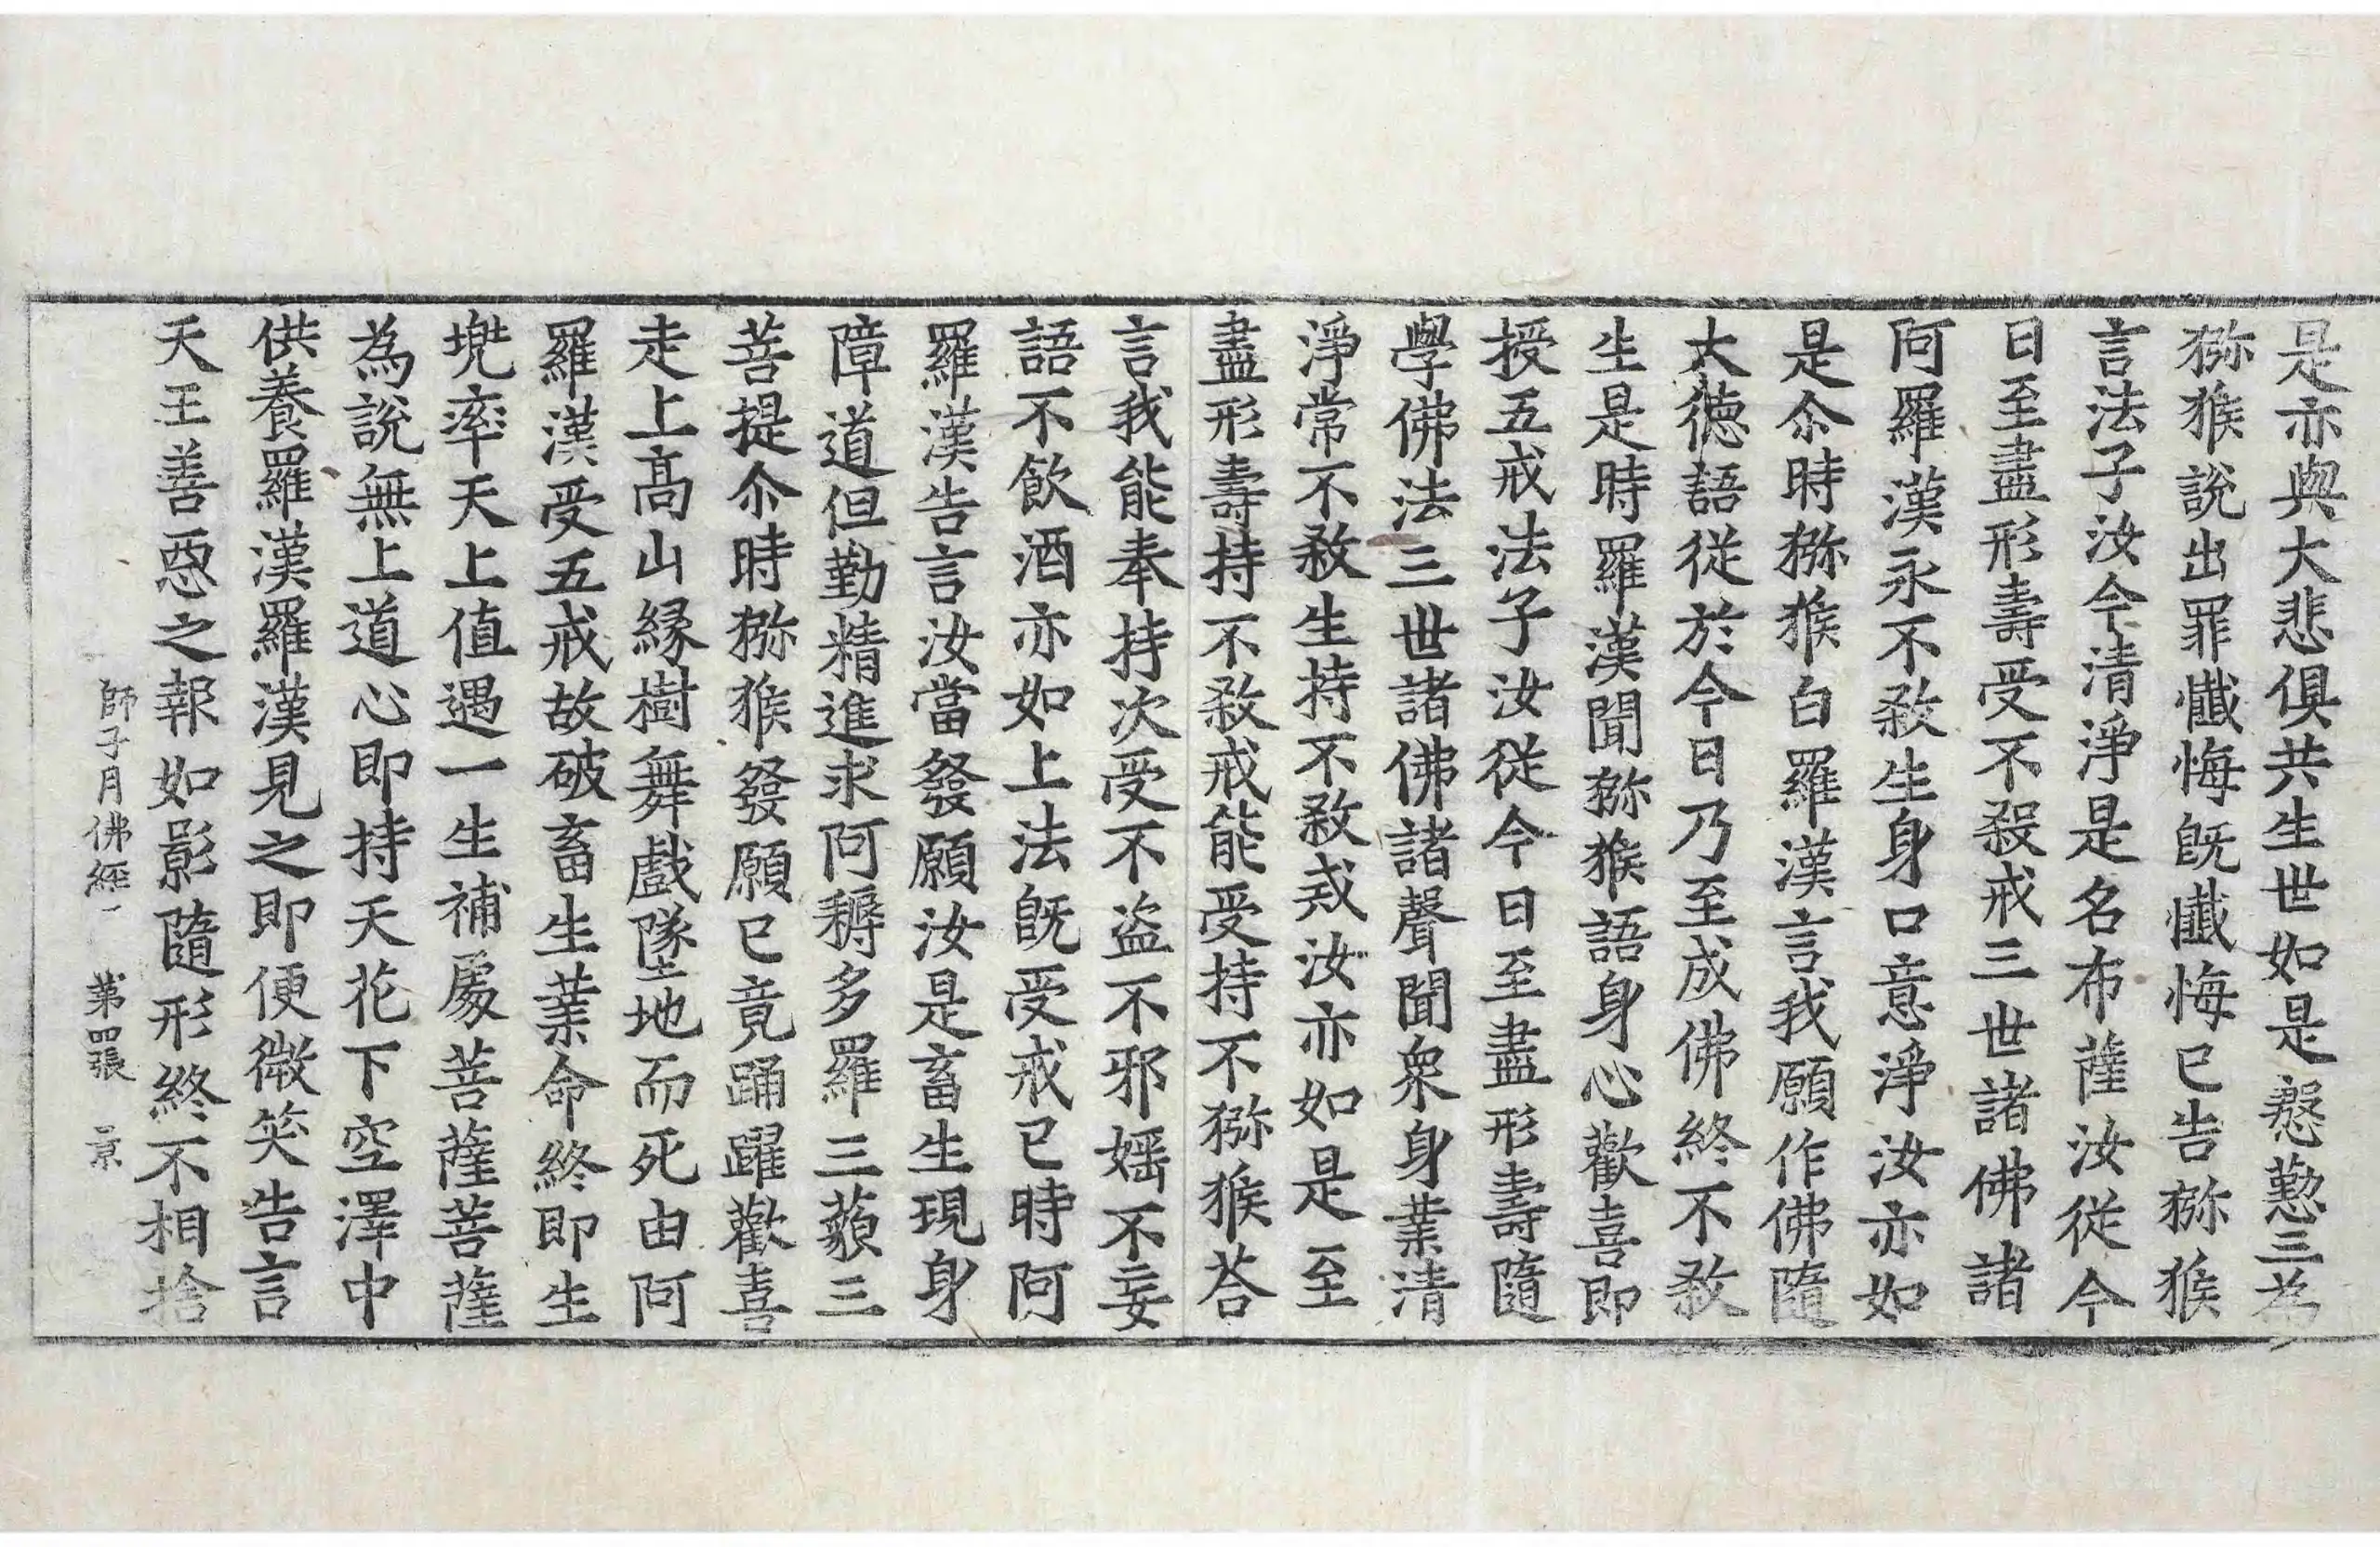 是亦與大悲俱共生世如是慇懃三為
猕猴說出罪懺悔旣懺悔已告猕猴
言法子汝今清淨是名布薩汝從今
日至盡形壽受不殺戒三世諸佛諸
阿羅漢永不敎生身口意淨汝亦如
是尒時猕猴白羅漢言我願作佛隨
大德語從於今日乃至成佛終不敎
生是時羅漢聞猕猴語身心歡喜即
授五戒法子汝從今日至盡形壽隨
學佛法三世諸佛諸聲聞衆身業清
淨常不敎生持不敎戒汝亦如是至
盡形壽持不敎戒能受持不猕猴荅
言我能奉持次受不盗不邪婬不妄
語不飲酒亦如上法旣受戒已時阿
羅漢告言汝當發願汝是畜生現身
障道但勤精進求阿耨多羅三藐三
菩提尒時猕猴發願已竟踊躍歡喜
走上高山縁樹舞戲墜地而死由阿
羅漢受五戒故破畜生業命終即生
兠率天上值遇一生補處菩薩菩薩
為說無上道心即持天花下空澤中
供養羅漢羅漢見之即便微笑告言
天王善惡之報如影隨形終不相捨
師子月佛經一 第四張 景